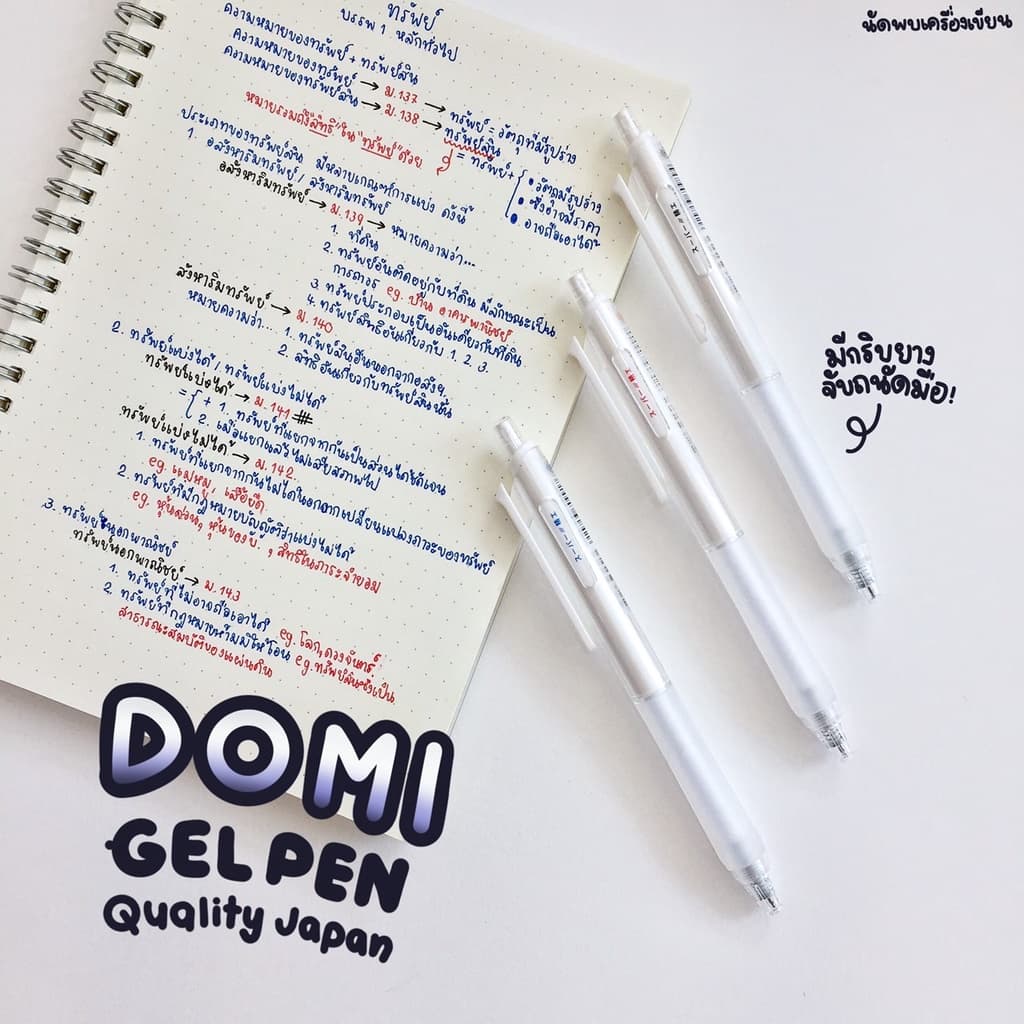 นัดพบเครื่องเขียน
ทรัพย์
บรรพ 1 หลักทั่วไป
ความหมายของทรัพย์ + ทรัพย์สิน
ความหมายของทรัพย์ → ม.137 → ทรัพย์ = วัตถุที่มีรูปร่าง
ความหมายของทรัพย์สิน → ม.138 → ทรัพย์สิน
= ทรัพย์ + { • วัตถุมีรูปร่าง
• ซึ่งอาจมีราคา
• อาจถือเอาได้
หมายรวมถึง "สิทธิ" ใน "ทรัพย์" ด้วย
ประเภทของทรัพย์สิน มีหลายเกณฑ์การแบ่ง ดังนี้
1. อสังหาริมทรัพย์ / สังหาริมทรัพย์
อสังหาริมทรัพย์ → ม.139 → หมายความว่า...
1. ที่ดิน
2. ทรัพย์อันติดอยู่กับที่ดิน มีลักษณะเป็น
การถาวร eg. บ้าน อาคารพาณิชย์
3. ทรัพย์ประกอบเป็นอันเดียวกับที่ดิน
4. ทรัพย์สิทธิอันเกี่ยวกับ 1. 2. 3.
สังหาริมทรัพย์ → ม.140
หมายความว่า...
1. ทรัพย์สินอื่นนอกจากอสังหา
2. สิทธิอันเกี่ยวกับทรัพย์สินนั้น
2. ทรัพย์แบ่งได้ / ทรัพย์แบ่งไม่ได้
ทรัพย์แบ่งได้ → ม.141 #
= { + 1. ทรัพย์ที่แยกจากกันเป็นส่วนได้ชัดเจน
2. เมื่อแยกแล้วไม่เสียสภาพไป
ทรัพย์แบ่งไม่ได้ → ม.142.
1. ทรัพย์ที่แยกจากกันไม่ได้นอกจากเปลี่ยนแปลงภาวะของทรัพย์
eg. แมงหมู, เสื้อยืด
2. ทรัพย์ที่มีกฎหมายบัญญัติว่าแบ่งไม่ได้
eg. หุ้นส่วน, หุ้นของบ., สิทธิในภาระจำยอม
3. ทรัพย์นอกพาณิชย์
ทรัพย์นอกพาณิชย์ → ม.143
1. ทรัพย์ที่ไม่อาจถือเอาได้ eg. โลก, ดวงจันทร์
2. ทรัพย์ที่กฎหมายห้ามมิให้โอน eg. ทรัพย์สินซึ่งเป็น
สาธารณะสมบัติของแผ่นดิน
มีกริบยาง
จับถนัดมือ!
DOMI
GEL PEN
Quality Japan